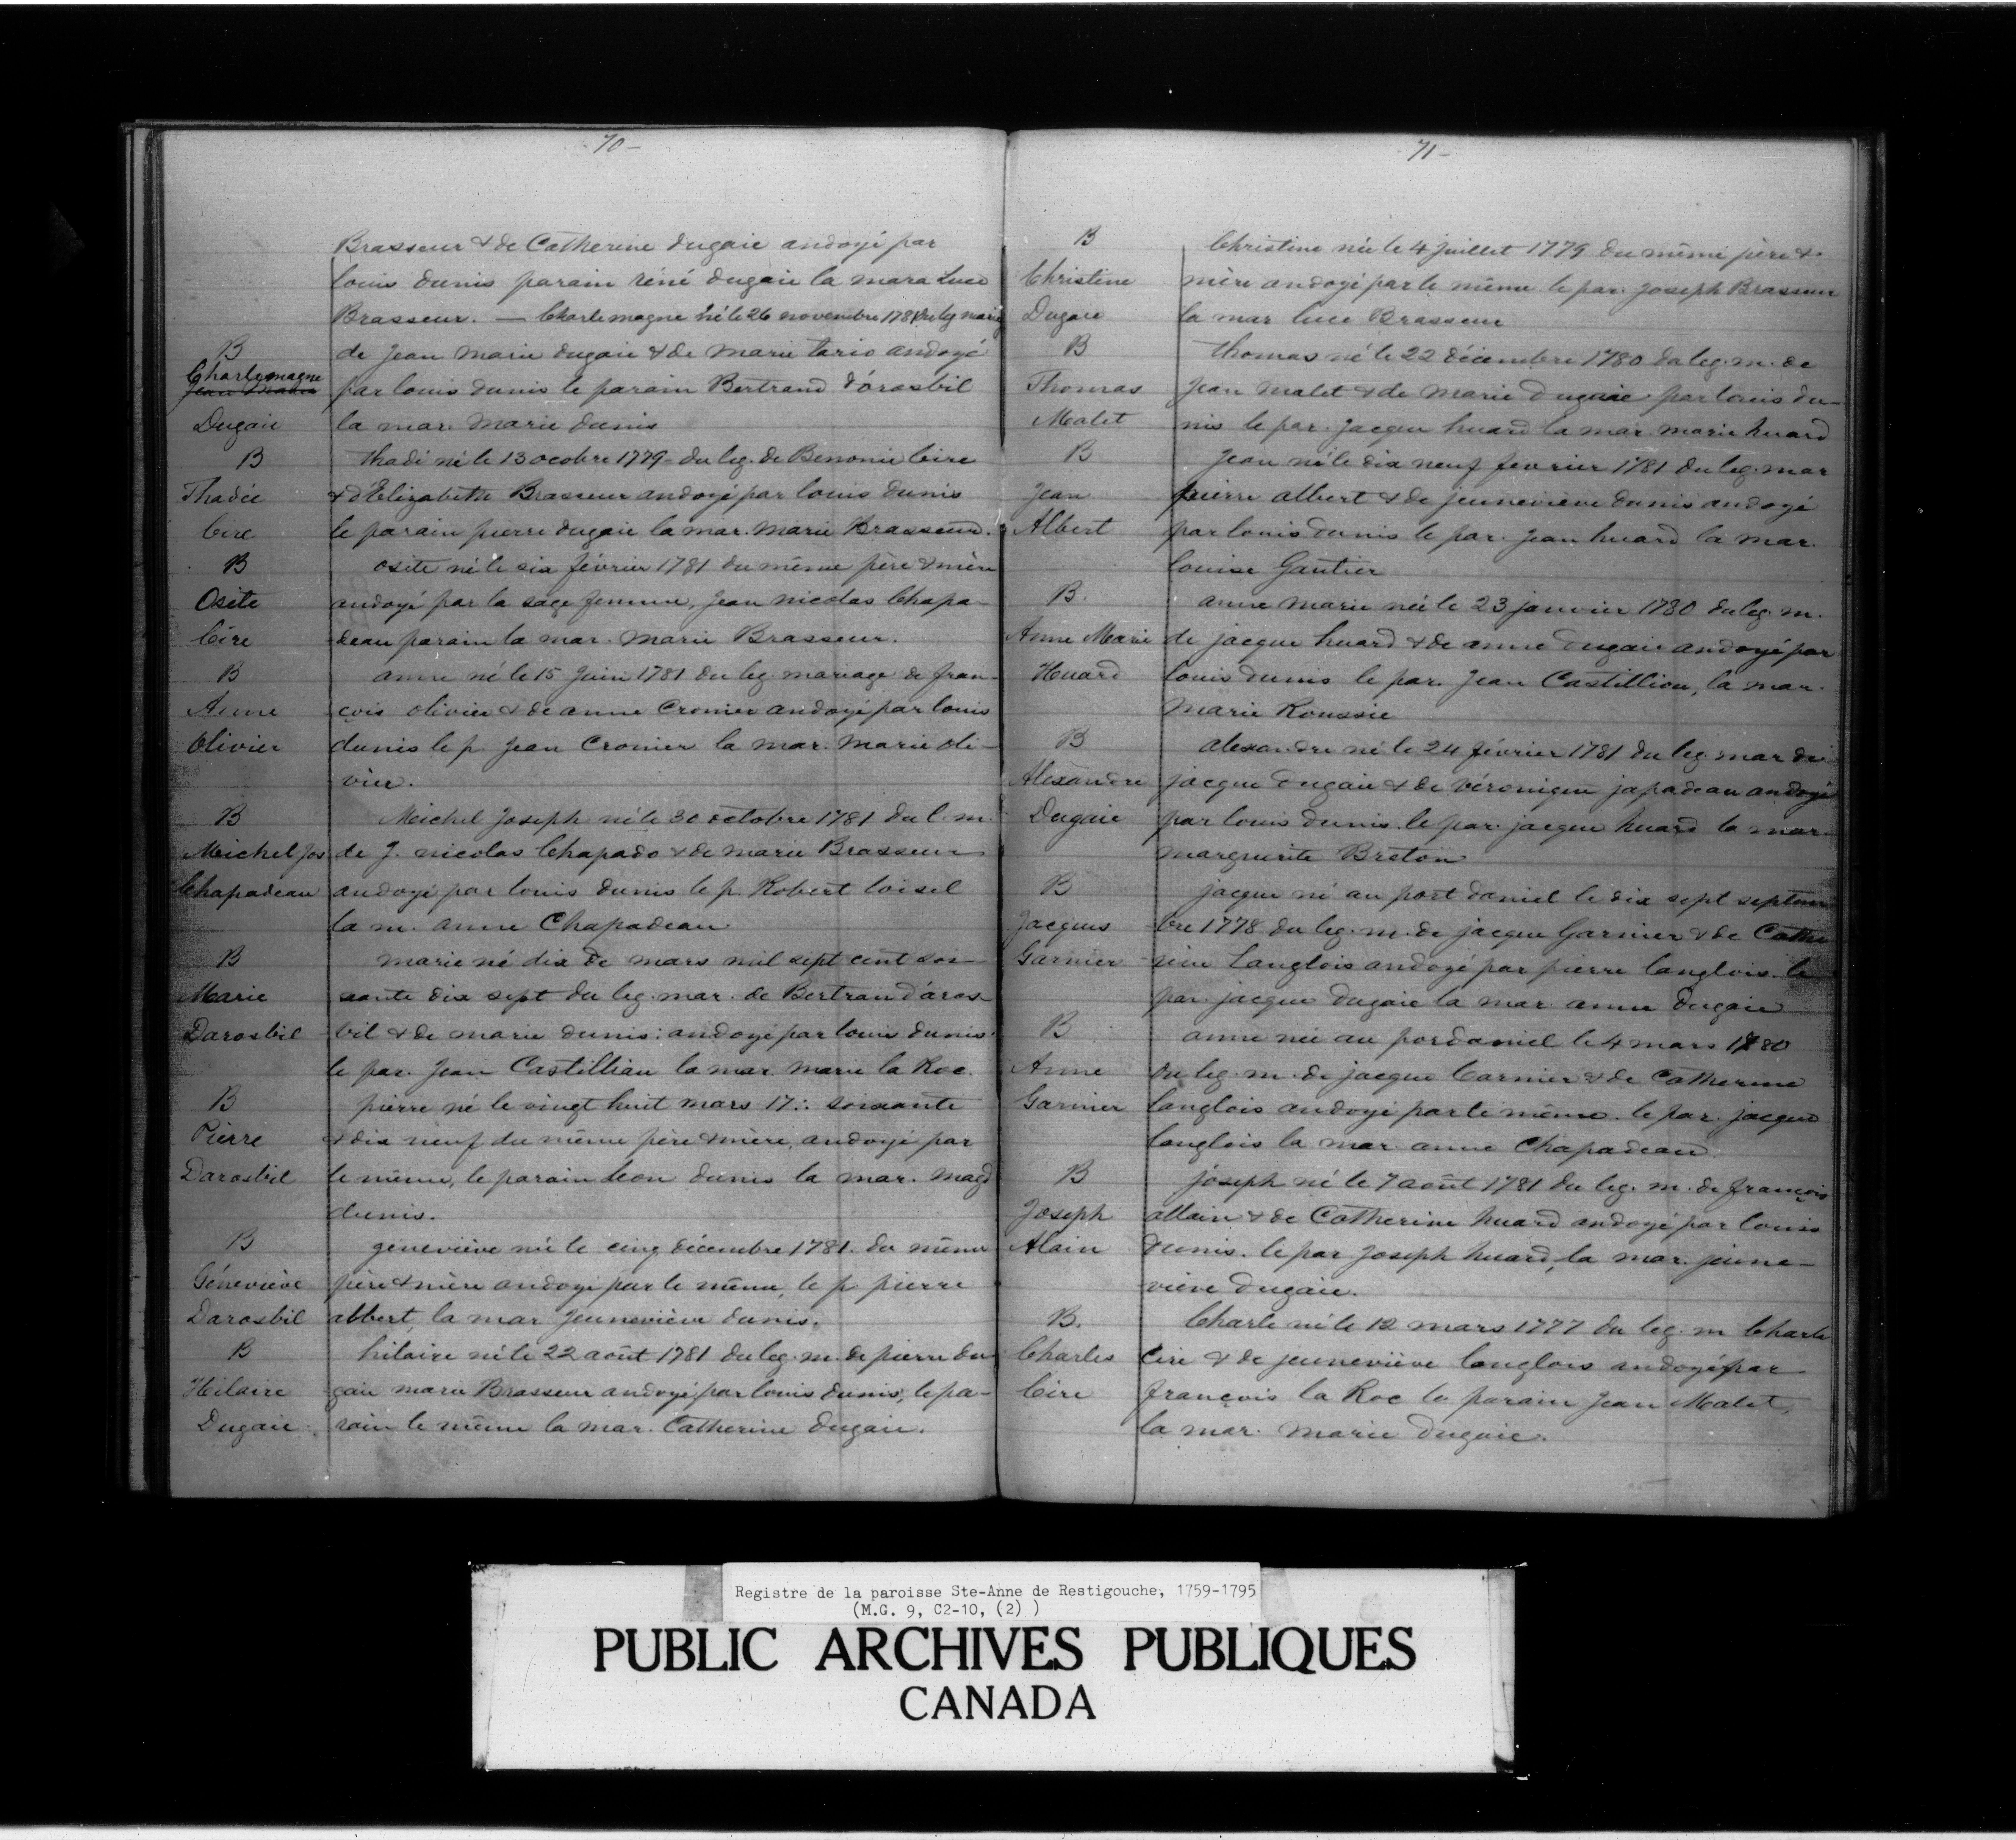 70 -
Brasseur & de Catherine dugaie andoyé par
louis dunis parain réné dugaie la mara Luce
Brasseur. — Charlemagne né le 26 novembre 1781 du leg marig
B
de Jean marie dugaie & de marie tario andoyé
Charlemagne
Jean Marie
par louis dunis le parain Bertrand d'órosbil
Dugaie
la mar. Marie dunis
B
thadé né le 13 ocobre 1779 - du leg. de Benonie Cire
Thadée
& d'Elizabeth Brasseur andoyé par louis dunis
Cire
le parain pierre dugaie la mar. Marie Brasseur.
B
osite né le six février 1781 du même père & mère
Osite
andoyé par la sage femme, Jean nicolas Chapa-
Cire
deau parain la mar. Marie Brasseur.
B
anne né le 15 Juin 1781 du leg. mariage de fran-
Anne
çois olivier & de anne Cronier andoyé par louis
Olivier
dunis le p. Jean Cronier la mar. Marie oli-
vier.
B
Michel Joseph né le 30 octobre 1781 du l. m.
Michel Jos
de J. nicolas Chapado & de marie Brasseur
Chapadeau
andoyé par louis dunis le p. Robert loisel
la m. anne Chapadeau
B
marie né dix de mars mil sept cent soi-
Marie
xante dix sept du leg. mar. de Bertran d'aros-
Darosbil
bil & de marie dunis: andoyé par louis dunis
le par. Jean Castillian la mar. marie la Roc.
B
pierre né le vingt huit mars 17:. soixante
Pierre
& dix neuf du même père & mère, andoyé par
Darosbil
le même, le parain leon dunis la mar. magd
dunis.
B
geneviève née le cinq décembre 1781. du même
Géneviève
père & mère andoyé par le même, le p. pierre
Darosbil
abbert, la mar Jeuneviève dunis.
B
hilaire né le 22 août 1781 du leg. m. de pierre du
Hilaire
gaie marie Brasseur andoyé par louis dunis, le pa-
Dugaie
rain le même la mar. Catherine dugaie.
71 -
B
Christine née le 4 juillet 1779 du même père &
Christine
mère andoyé par le même le par. Joseph Brasseur
Dugaie
la mar luce Brasseur
B
thomas né le 22 décembre 1780 du leg. m. de
Thomas
Jean malet & de marie Dugaie par louis du-
Malet
nis le par. Jacque huard la mar marie huard
B
Jean né le dix neuf fevrier 1781 du leg. mar
Jean
pierre albert & de jeuneviève dunis andoyé
Albert
par louis dunis le par. Jean huard la mar.
louise Gautier
B.
anne marie née le 23 janvier 1780 du leg. m.
Anne Marie
de jacque huard & de anne dugaie andoyé par
Huard
louis dunis le par. Jean Castilliou, la mar.
Marie Roussie
B
alexandre né le 24 février 1781 du leg mar de
Alexandre
jacque dugaie & de véronique japadeau andoyé
Dugaie
par louis dunis. le par. jacque huard la mar.
marguerite Breton
B
jacque né au port daniel le dix sept septem
Jacques
bre 1778 du leg. m. de jacque Garnier & de Cathe
Garnier
rine Langlois andoyé par pierre langlois. le
par. jacque dugaie la mar. anne dugaie
B
anne née au pordaniel le 4 mars 1780
Anne
du leg. m. de jacque Carnier & de Catherine
Garnier
langlois andoyé par le même. le par. jacque
langlois la mar. anne Chapadeau.
B
joseph né le 7 août 1781 du leg. m. de françois
Joseph
allain & de Catherine huard andoyé par louis
Alain
dunis. le par Joseph huard, la mar. jeune-
viève dugaie.
B.
Charle né le 12 mars 1777 du leg. m Charle
Charles
Cire & de jeuneviève langlois andoyé par
Cire
françois la Roc le parain Jean Malet,
la mar. Marie dugaie.
Registre de la paroisse Ste-Anne de Restigouche, 1759-1795
(M.G. 9, C2-10, (2) )
PUBLIC ARCHIVES PUBLIQUES
CANADA